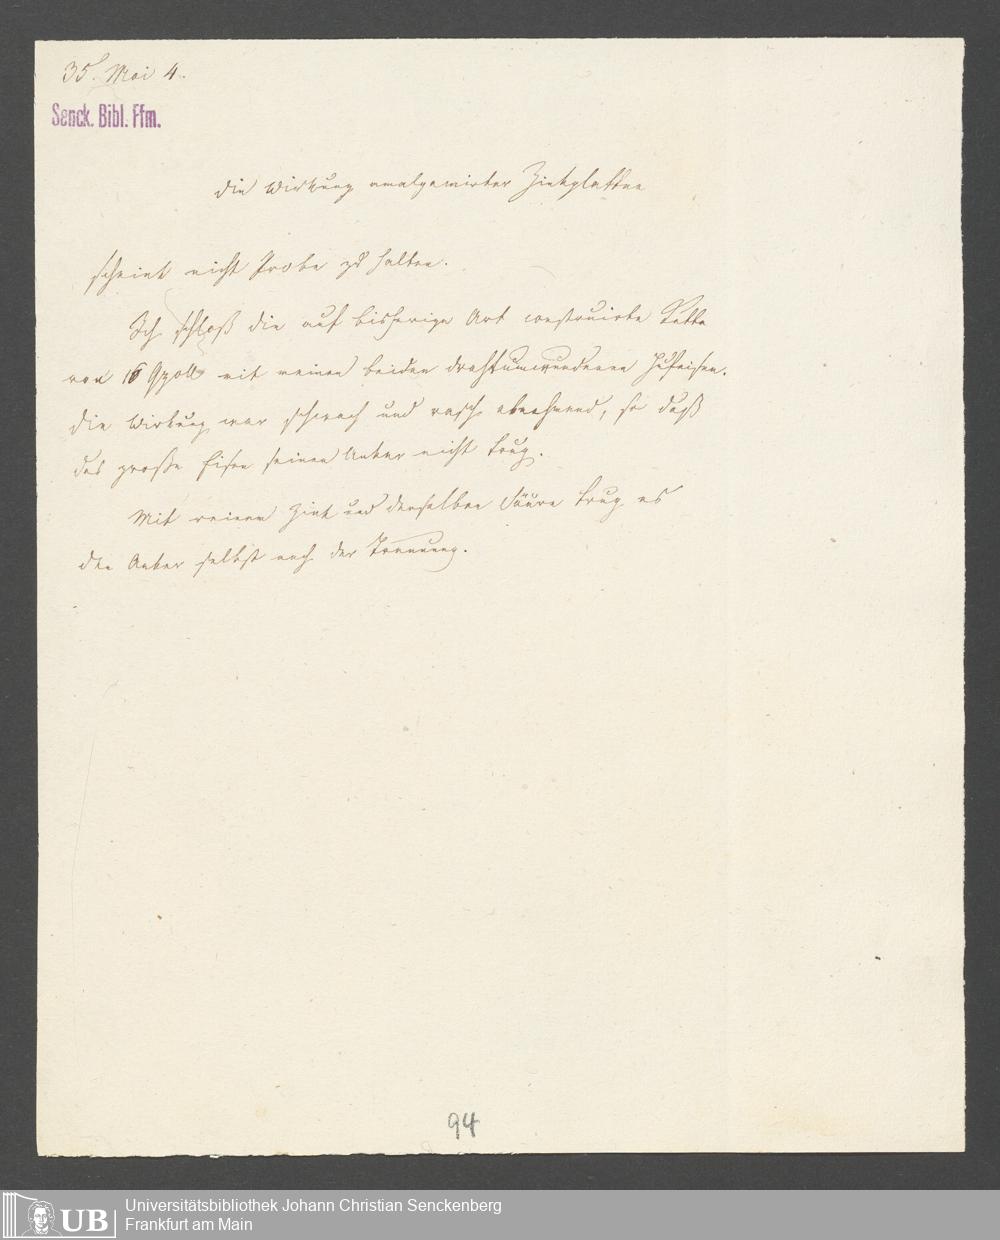 35. Mai 4.
Senck. Bibl. Ffm.
Die Wirkung amalgamirter Zinkplatten
scheint nicht Probe zu halten.
Ich schloß die auf bisherige Art construirte Kette
von 16 Qzoll mit meinen beiden drahtumwundenen Hufeisen.
Die Wirkung war schwach und rasch abnehmend, so daß
das große Eisen seinen Anker nicht trug.
Mit reinem Zink und derselben Säure trug es
den Anker selbst nach der Trennung.
94
UB
Universitätsbibliothek Johann Christian Senckenberg
Frankfurt am Main